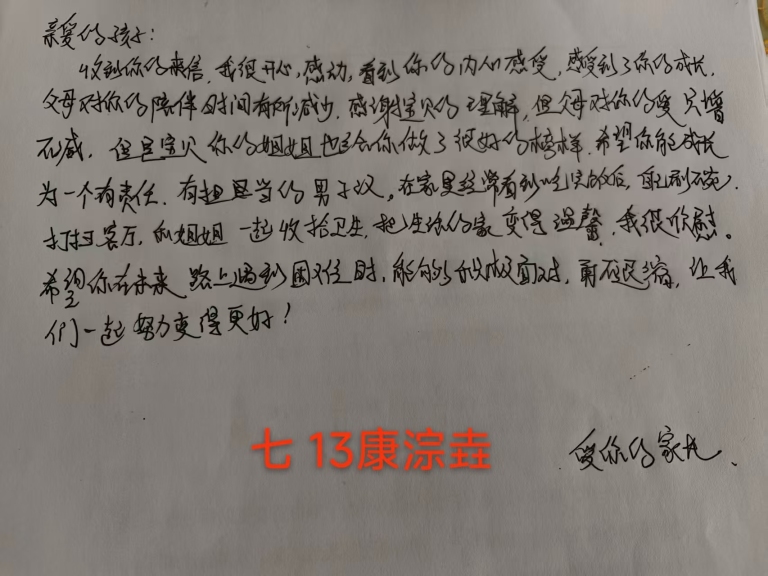 亲爱的孩子：
收到你的来信，我很开心，感动，看到你的内心感受，感受到了你的成长，
父母对你的陪伴时间有所减少，感谢宝贝的理解，但父母对你的爱只增
不减，但是宝贝你的姐姐也会给你做了很好的榜样，希望你能成长
为一个有责任、有担当的男子汉，在家里经常看到吃完饭后，自己刷碗、
打扫客厅，和姐姐一起收拾卫生，把你的家变得温馨，我很欣慰。
希望你在未来路上遇到困难时，能够面对，勇不退缩，让我
们一起努力变得更好！
爱你的家长、
七 13康淙垚